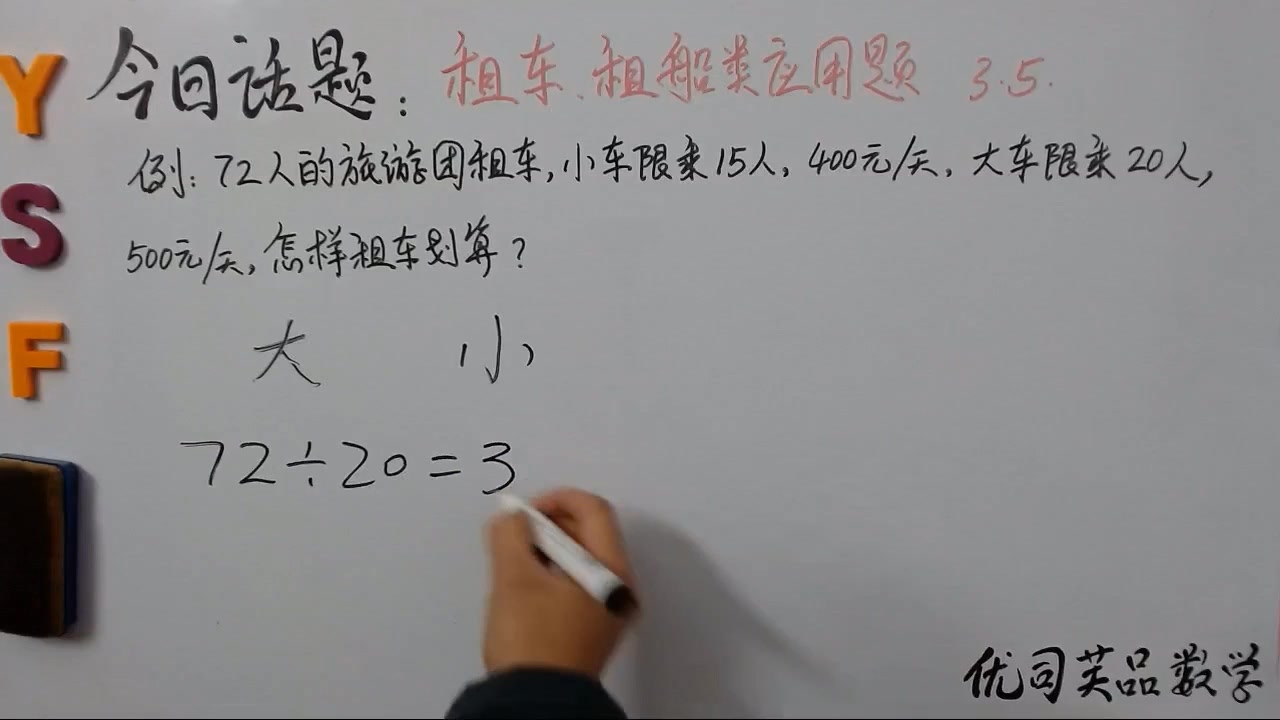 今日话题：租车、租船类应用题 3.5.
例：72人的旅游团租车，小车限乘15人，400元/天，大车限乘20人，
500元/天，怎样租车划算？
大 小
72÷20=3
Y
S
F
优司芙品数学